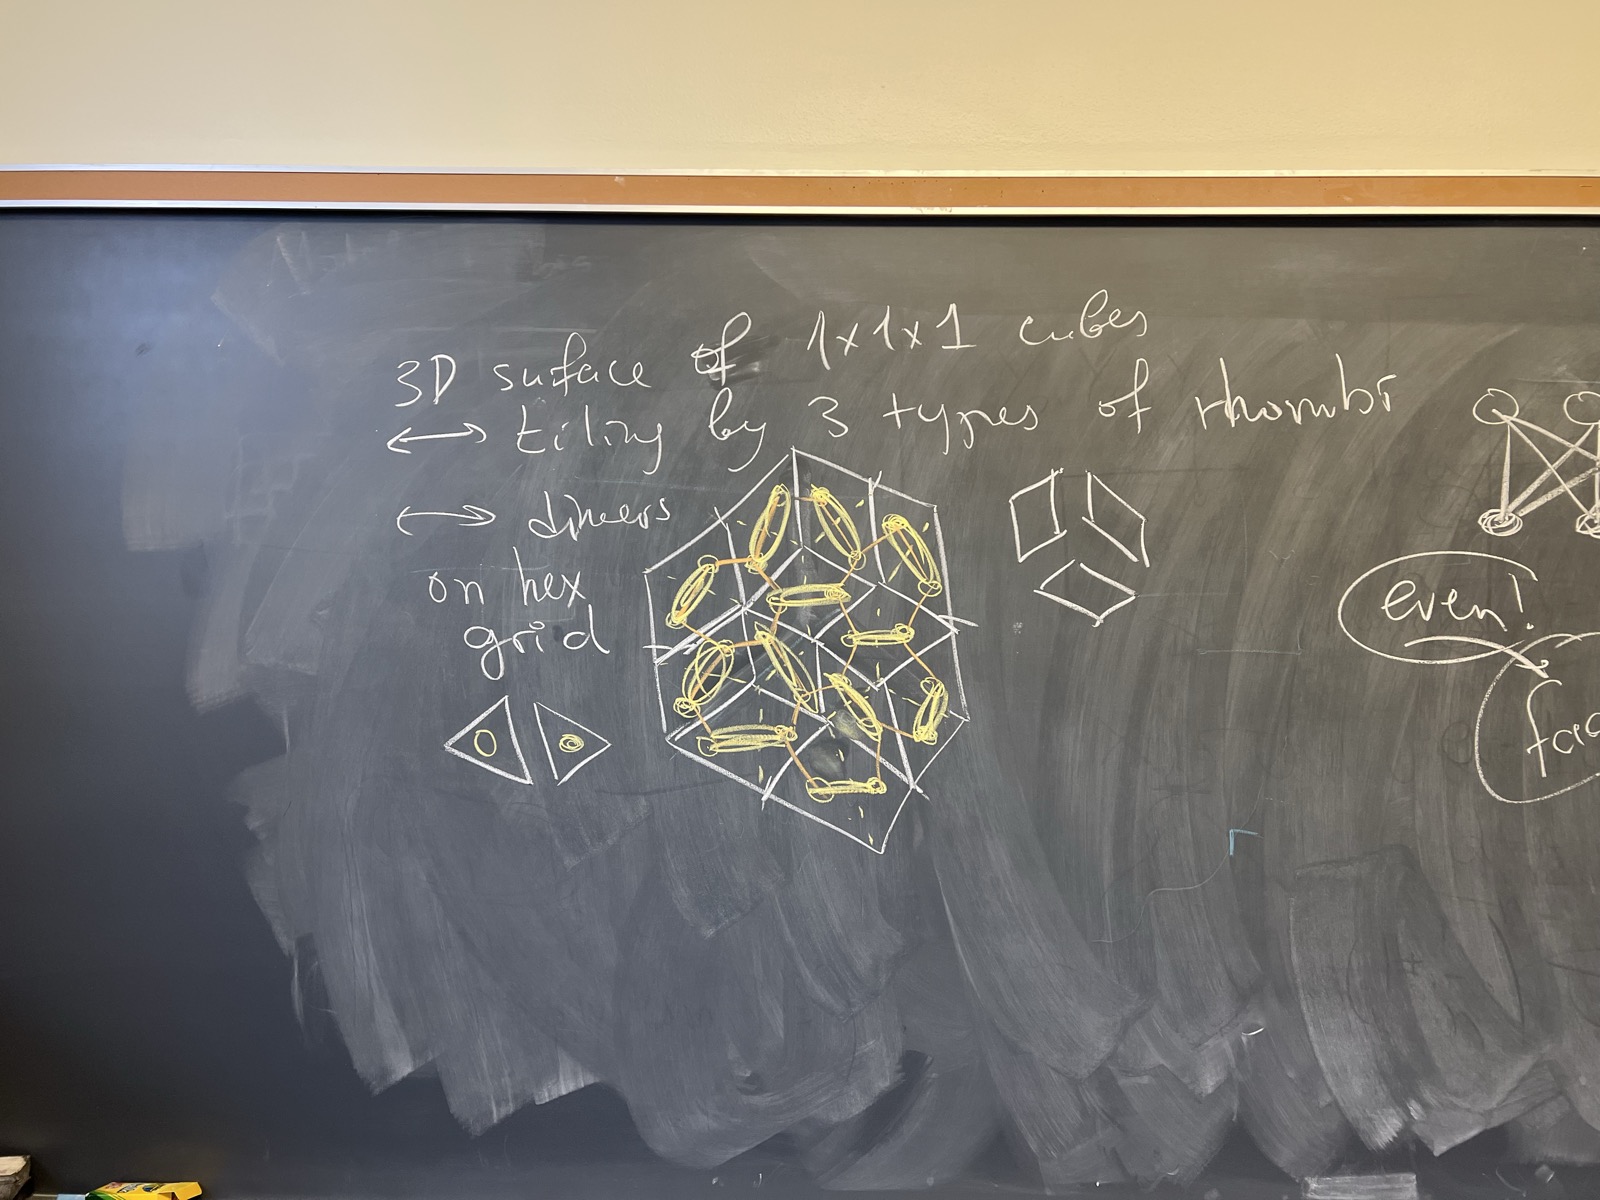 3D surface of 1x1x1 cubes
↔ tiling by 3 types of rhombi
↔ dimers
on hex
grid
even!
fac